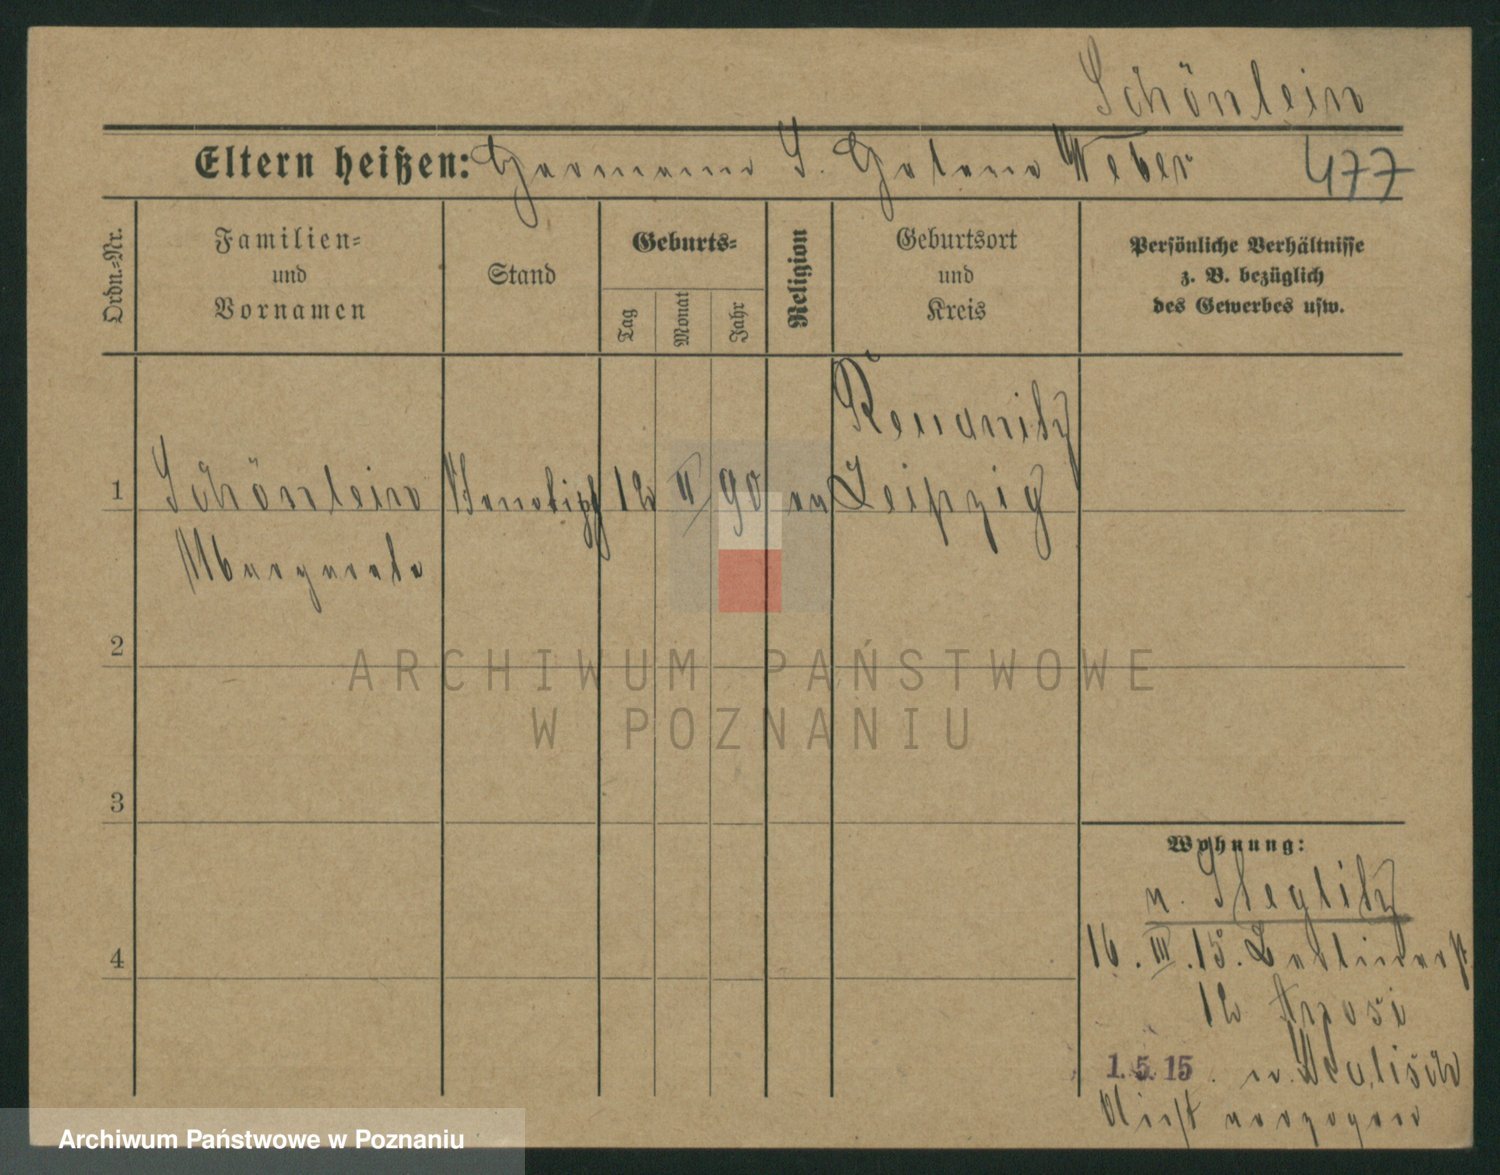 Schönlein
Eltern heißen: Hermann S. Helene Weber 477
Ordn.=Nr.
Familien=
und
Vornamen
Stand
Geburts=
Tag
Monat
Jahr
Religion
Geburtsort
und
Kreis
Persönliche Verhältnisse
z. B. bezüglich
des Gewerbes usw.
Reudnitz
1 Schönlein 12 II 90 ev Leipzig
Margarete
2
ARCHIWUM PAŃSTWOWE
W POZNANIU
3
Wohnung:
n. Steglitz
16. III. 15. Berlinerst
12
4
1. 5. 15
verzogen
Archiwum Państwowe w Poznaniu